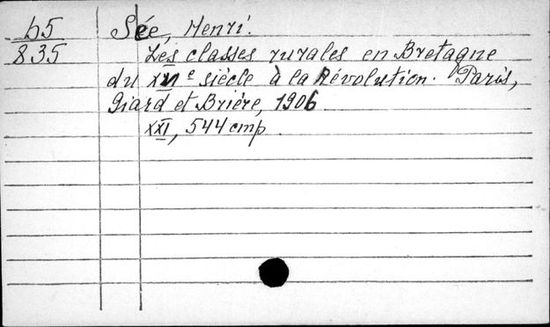 h5
835
Sée, Henri.
Les classes rurales en Bretagne
du XVIe siècle à la Révolution. Paris,
Giard et Brière, 1906
XXI, 544 стр